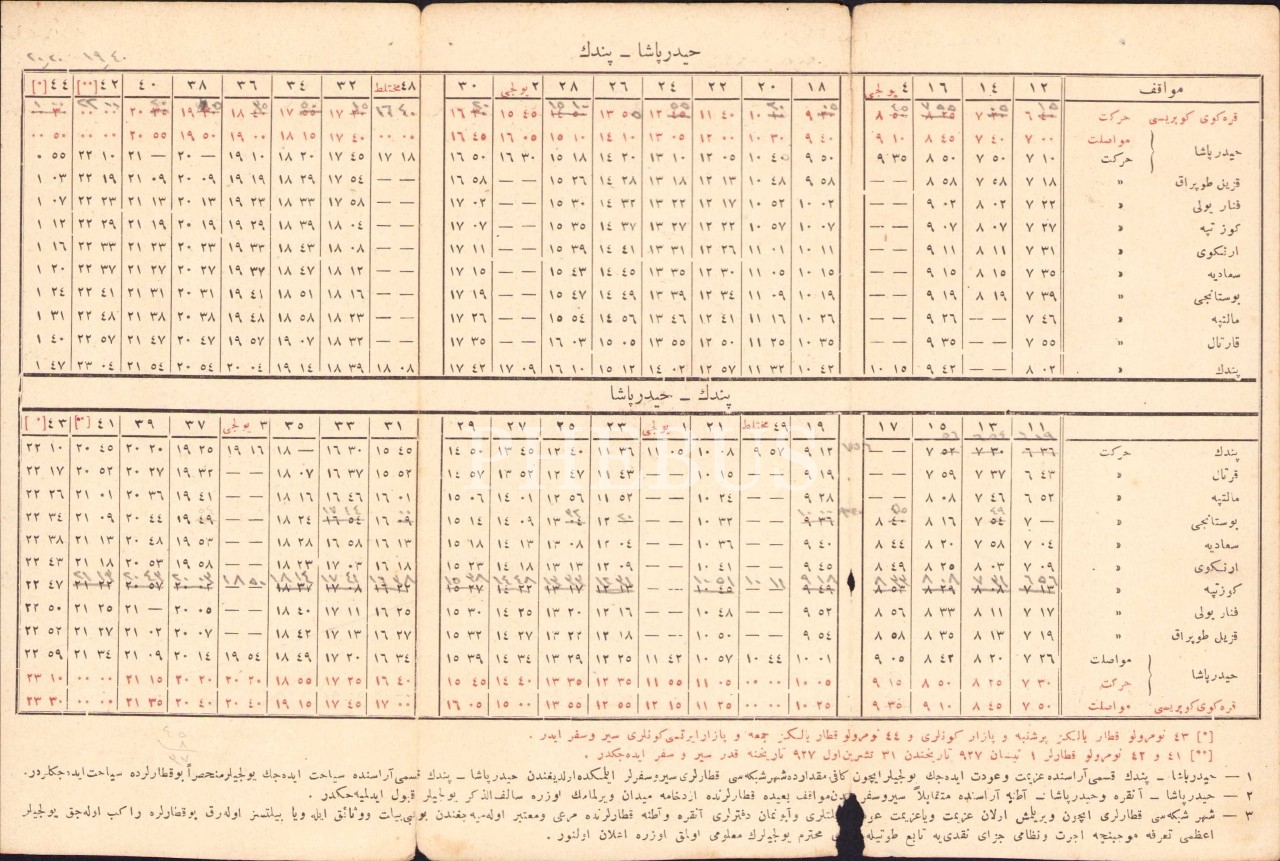 حیدرپاشا ـ پندك
مواقف ١٢ ١٤ ١٦ ٤ یولجی ١٨ ٢٠ ٢٢ ٢٤ ٢٦ ٢٨ ٢ یولجی ٣٠ ٤٨ مختلط ٣٢ ٣٤ ٣٦ ٣٨ ٤٠ ٤٢ [**] ٤٤ [*]
قره‌کوی کوپریسی حرکت
حیدرپاشا مواصلت ٧ ٠٠ ٧ ٤٠ ٨ ٤٥ ٩ ١٠ ٩ ٤٠ ١٠ ٣٠ ١٢ ٠٠ ١٣ ٠٥ ١٤ ١٠ ١٥ ١٠ ١٦ ٠٥ ١٦ ٤٥ ٠٠ ٠٠ ١٧ ٤٠ ١٨ ١٥ ١٩ ٠٠ ١٩ ٥٠ ٢٠ ٥٥ ٠٠ ٠٠ ٠٠ ٥٠
حرکت ٧ ١٠ ٧ ٥٠ ٨ ٥٠ ٩ ٣٥ ٩ ٥٠ ١٠ ٤٠ ١٢ ٠٥ ١٣ ١٠ ١٤ ٢٠ ١٥ ١٨ ١٦ ٣٠ ١٦ ٥٠ ١٧ ١٨ ١٧ ٤٥ ١٨ ٢٠ ١٩ ١٠ ٢٠ — ٢١ — ٢٢ ١٠ ٠ ٥٥
قزیل طوپراق » ٧ ١٨ ٧ ٥٨ ٨ ٥٨ — — ٩ ٥٨ ١٠ ٤٨ ١٢ ١٣ ١٣ ١٨ ١٤ ٢٨ ١٥ ٢٦ — — ١٦ ٥٨ — — ١٧ ٥٤ ١٨ ٢٩ ١٩ ١٩ ٢٠ ٠٩ ٢١ ٠٩ ٢٢ ١٩ ١ ٠٣
فنار یولی » ٧ ٢٢ ٨ ٠٢ ٩ ٠٢ — — ١٠ ٠٢ ١٠ ٥٢ ١٢ ١٧ ١٣ ٢٢ ١٤ ٣٢ ١٥ ٣٠ — — ١٧ ٠٢ — — ١٧ ٥٨ ١٨ ٣٣ ١٩ ٢٣ ٢٠ ١٣ ٢١ ١٣ ٢٢ ٢٣ ١ ٠٧
کوز تپه » ٧ ٢٧ ٨ ٠٧ ٩ ٠٧ — — ١٠ ٠٧ ١٠ ٥٧ ١٢ ٢٢ ١٣ ٢٧ ١٤ ٣٧ ١٥ ٣٥ — — ١٧ ٠٧ — — ١٨ ٠٤ ١٨ ٣٩ ١٩ ٢٩ ٢٠ ١٩ ٢١ ١٩ ٢٢ ٢٩ ١ ١٢
ارنکوی » ٧ ٣١ ٨ ١١ ٩ ١١ — — ١٠ ١١ ١١ ٠١ ١٢ ٢٦ ١٣ ٣١ ١٤ ٤١ ١٥ ٣٩ — — ١٧ ١١ — — ١٨ ٠٨ ١٨ ٤٣ ١٩ ٣٣ ٢٠ ٢٣ ٢١ ٢٣ ٢٢ ٣٣ ١ ١٦
سعادیه » ٧ ٣٥ ٨ ١٥ ٩ ١٥ — — ١٠ ١٥ ١١ ٠٥ ١٢ ٣٠ ١٣ ٣٥ ١٤ ٤٥ ١٥ ٤٣ — — ١٧ ١٥ — — ١٨ ١٢ ١٨ ٤٧ ١٩ ٣٧ ٢٠ ٢٧ ٢١ ٢٧ ٢٢ ٣٧ ١ ٢٠
بوستانجی » ٧ ٣٩ ٨ ١٩ ٩ ١٩ — — ١٠ ١٩ ١١ ٠٩ ١٢ ٣٤ ١٣ ٣٩ ١٤ ٤٩ ١٥ ٤٧ — — ١٧ ١٩ — — ١٨ ١٦ ١٨ ٥١ ١٩ ٤١ ٢٠ ٣١ ٢١ ٣١ ٢٢ ٤١ ١ ٢٤
مالتپه » ٧ ٤٦ — — ٩ ٢٦ — — ١٠ ٢٦ ١١ ١٦ ١٢ ٤١ ١٣ ٤٦ ١٤ ٥٦ ١٥ ٥٤ — — ١٧ ٢٦ — — ١٨ ٢٣ ١٨ ٥٨ ١٩ ٤٨ ٢٠ ٣٨ ٢١ ٣٨ ٢٢ ٤٨ ١ ٣١
قارتال » ٧ ٥٥ — — ٩ ٣٥ — — ١٠ ٣٥ ١١ ٢٥ ١٢ ٥٠ ١٣ ٥٥ ١٥ ٠٥ ١٦ ٠٣ — — ١٧ ٣٥ — — ١٨ ٣٢ ١٩ ٠٧ ١٩ ٥٧ ٢٠ ٤٧ ٢١ ٤٧ ٢٢ ٥٧ ١ ٤٠
پندك » ٨ ٠٢ — — ٩ ٤٢ ١٠ ١٥ ١٠ ٤٢ ١١ ٣٢ ١٢ ٥٧ ١٤ ٠٢ ١٥ ١٢ ١٦ ١٠ ١٧ ٠٩ ١٧ ٤٢ ١٨ ٠٨ ١٨ ٣٩ ١٩ ١٤ ٢٠ ٠٤ ٢٠ ٥٤ ٢١ ٥٤ ٢٣ ٠٤ ١ ٤٧
پندك ـ حیدرپاشا
١١ ١٣ ١٥ ١٧ ١٩ ٤٩ مختلط ٢١ ١ یولجی ٢٣ ٢٥ ٢٧ ٢٩ ٣١ ٣٣ ٣٥ ٣ یولجی ٣٧ ٣٩ ٤١ [**] ٤٣ [*]
پندك حرکت ٦ ٣٦ ٧ ٣٠ ٧ ٥٢ — — ٩ ١٢ ٩ ٥٧ ١٠ ٠٨ ١١ ٠٥ ١١ ٣٦ ١٢ ٤٠ ١٣ ٤٥ ١٤ ٥٠ ١٥ ٤٥ ١٦ ٣٠ ١٨ — ١٩ ١٦ ١٩ ٢٥ ٢٠ ٢٠ ٢٠ ٤٥ ٢٢ ١٠
قرتال » ٦ ٤٣ ٧ ٣٧ ٧ ٥٩ — — ٩ ١٩ — — ١٠ ١٥ — — ١١ ٤٣ ١٢ ٤٧ ١٣ ٥٢ ١٤ ٥٧ ١٥ ٥٢ ١٦ ٣٧ ١٨ ٠٧ — — ١٩ ٣٢ ٢٠ ٢٧ ٢٠ ٥٢ ٢٢ ١٧
مالتپه » ٦ ٥٢ ٧ ٤٦ ٨ ٠٨ — — ٩ ٢٨ — — ١٠ ٢٤ — — ١١ ٥٢ ١٢ ٥٦ ١٤ ٠١ ١٥ ٠٦ ١٦ ٠١ ١٦ ٤٦ ١٨ ١٦ — — ١٩ ٤١ ٢٠ ٣٦ ٢١ ٠١ ٢٢ ٢٦
بوستانجی » ٧ — ٧ ٥٤ ٨ ١٦ ٨ ٤٠ ٩ ٣٦ — — ١٠ ٣٢ — — ١٤ ٠٩ ١٥ ١٤ ١٦ ٠٩ ١٦ ٥٤ ١٨ ٢٤ — — ١٩ ٤٩ ٢٠ ٤٤ ٢١ ٠٩ ٢٢ ٣٤
سعادیه » ٧ ٠٤ ٧ ٥٨ ٨ ٢٠ ٨ ٤٤ ٩ ٤٠ — — ١٠ ٣٦ — — ١٢ ٠٤ ١٣ ٠٨ ١٤ ١٣ ١٥ ١٨ ١٦ ١٣ ١٦ ٥٨ ١٨ ٢٨ — — ١٩ ٥٣ ٢٠ ٤٨ ٢١ ١٣ ٢٢ ٣٨
ارنکوی » ٧ ٠٩ ٨ ٠٣ ٨ ٢٥ ٨ ٤٩ — — ١٠ ٤١ — — ١٢ ٠٩ ١٣ ١٣ ١٤ ١٨ ١٥ ٢٣ ١٦ ١٨ ١٧ ٠٣ — — ١٩ ٥٨ ٢٠ ٥٣ ٢١ ١٨ ٢٢ ٤٣
کوزتپه » ٢٢ ٤٧
فنار یولی » ٧ ١٧ ٨ ١١ ٨ ٣٣ ٨ ٥٦ ٩ ٥٢ — — ١٠ ٤٨ — — ١٢ ١٦ ١٣ ٢٠ ١٤ ٢٥ ١٥ ٣٠ ١٦ ٢٥ ١٧ ١١ ١٨ ٤٠ — — ٢٠ ٠٥ ٢١ — ٢١ ٢٥ ٢٢ ٥٠
قزیل طوپراق » ٧ ١٩ ٨ ١٣ ٨ ٣٥ ٨ ٥٨ ٩ ٥٤ — — ١٠ ٥٠ — — ١٢ ١٨ ١٣ ٢٢ ١٤ ٢٧ ١٥ ٣٢ ١٦ ٢٧ ١٧ ١٣ ١٨ ٤٢ — — ٢٠ ٠٧ ٢١ ٠٢ ٢١ ٢٧ ٢٢ ٥٢
حیدرپاشا مواصلت ٧ ٢٦ ٨ ٢٠ ٨ ٤٢ ٩ ٠٥ ١٠ ٠١ ١٠ ٤٤ ١٠ ٥٧ ١١ ٤٢ ١٢ ٢٥ ١٣ ٢٩ ١٤ ٣٤ ١٥ ٣٩ ١٦ ٣٤ ١٧ ٢٠ ١٨ ٤٩ ١٩ ٥٤ ٢٠ ١٤ ٢١ ٠٩ ٢١ ٣٤ ٢٢ ٥٩
حرکت ٧ ٣٠ ٨ ٢٥ ٨ ٥٠ ٩ ١٥ ١٠ ٠٥ ٠٠ ٠٠ ١١ ٠٥ ١١ ٥٥ ١٢ ٣٥ ١٣ ٣٥ ١٤ ٤٠ ١٥ ٤٥ ١٦ ٤٠ ١٧ ٢٥ ١٨ ٥٥ ٢٠ ٢٠ ٢٠ ٢٠ ٢١ ١٥ ٠٠ ٠٠ ٢٣ ١٠
قره‌کوی کوپریسی مواصلت ٧ ٥٠ ٨ ٤٥ ٩ ١٠ ٩ ٣٥ ١٠ ٢٥ ٠٠ ٠٠ ١١ ٢٥ ١٢ ١٥ ١٢ ٥٥ ١٣ ٥٥ ١٥ ٠٠ ١٦ ٠٥ ١٧ ٠٠ ١٧ ٤٥ ١٩ ١٥ ٢٠ ٤٠ ٢٠ ٤٠ ٢١ ٣٥ ٠٠ ٠٠ ٢٣ ٣٠
[*] ٤٣ نومرولو قطار یالکز پرشنبه و بازار کونلری و ٤٤ نومرولو قطار یالکز جمعه و بازارایرتسی کونلری سیر و سفر ایدر.
[**] ٤١ و ٤٢ نومرولو قطارلر ١ نیسان ٩٢٧ تاریخندن ٣١ تشرین اول ٩٢٧ تاریخنه قدر سیر و سفر ایده‌جکدر.
١ — حیدرپاشا ـ پندك قسمی آراسنده عزیمت وعودت ایده‌جك یولجیلر ایچون کافی مقدارده شهر شبکه‌سی قطارلری سیروسفر ایتمکده اولدیغندن حیدرپاشا ـ پندك قسمی آراسنده سیاحت ایده‌جك یولجیلر منحصراً بو قطارلرده سیاحت ایده‌جکلردر.
٢ — حیدرپاشا ـ آنقره وحیدرپاشا ـ آطنه آراسنده متقابلاً سیروسفر مواقف بعیده قطارلرنده ازدحامه میدان ویرلمامك اوزره سالف‌الذکر یولجیلر قبول ایدلمیه‌جکدر.
٣ — شهر شبکه‌سی قطارلری ایچون ویریلمش اولان عزیمت ویاعزیمت وآبونمان دفترلری آنقره وآطنه قطارلرنده مرعی ومعتبر اولمیه‌جغندن بیلتسز اوله‌رق بوقطارلره راکب اوله‌جق یولجیلر
اعظمی تعرفه موجبنجه اجرت ونظامی جزای نقدی‌یه تابع محترم یولجیلرك معلومی اولمق اوزره اعلان اولنور.
PHEBUS